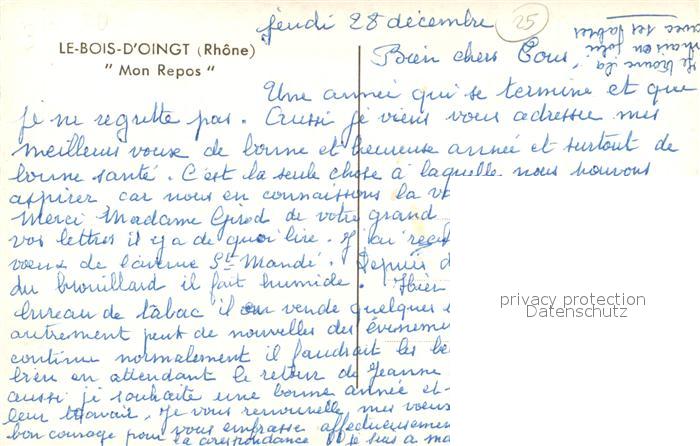 jeudi 28 décembre
25
LE-BOIS-D'OINGT (Rhône)
" Mon Repos "
Bien chers Tous,
Je trouve la
maison jolie
avec ses arbres
Une année qui se termine et que
je ne regrette pas. Aussi je viens vous adresser mes
meilleurs voeux de bonne et heureuse année et surtout de
bonne santé. C'est la seule chose à laquelle nous pouvons
aspirer car nous en connaissons la
Merci Madame Girod de votre grand
vos lettres il y a de quoi lire. J'ai reçu
voeux de l'avenue St Mandé. Depuis
du brouillard il fait humide. Hier
bureau de tabac il vende quelques
autrement peut de nouvelles des évèneme
continue normalement il faudrait les
bien en attendant le retour de Jeanne
aussi je souhaite une bonne année et
leur travail. Je vous renouvelle mes voeux
bon courage pour la correspondance
vous embrasse affectueusement
privacy protection
Datenschutz